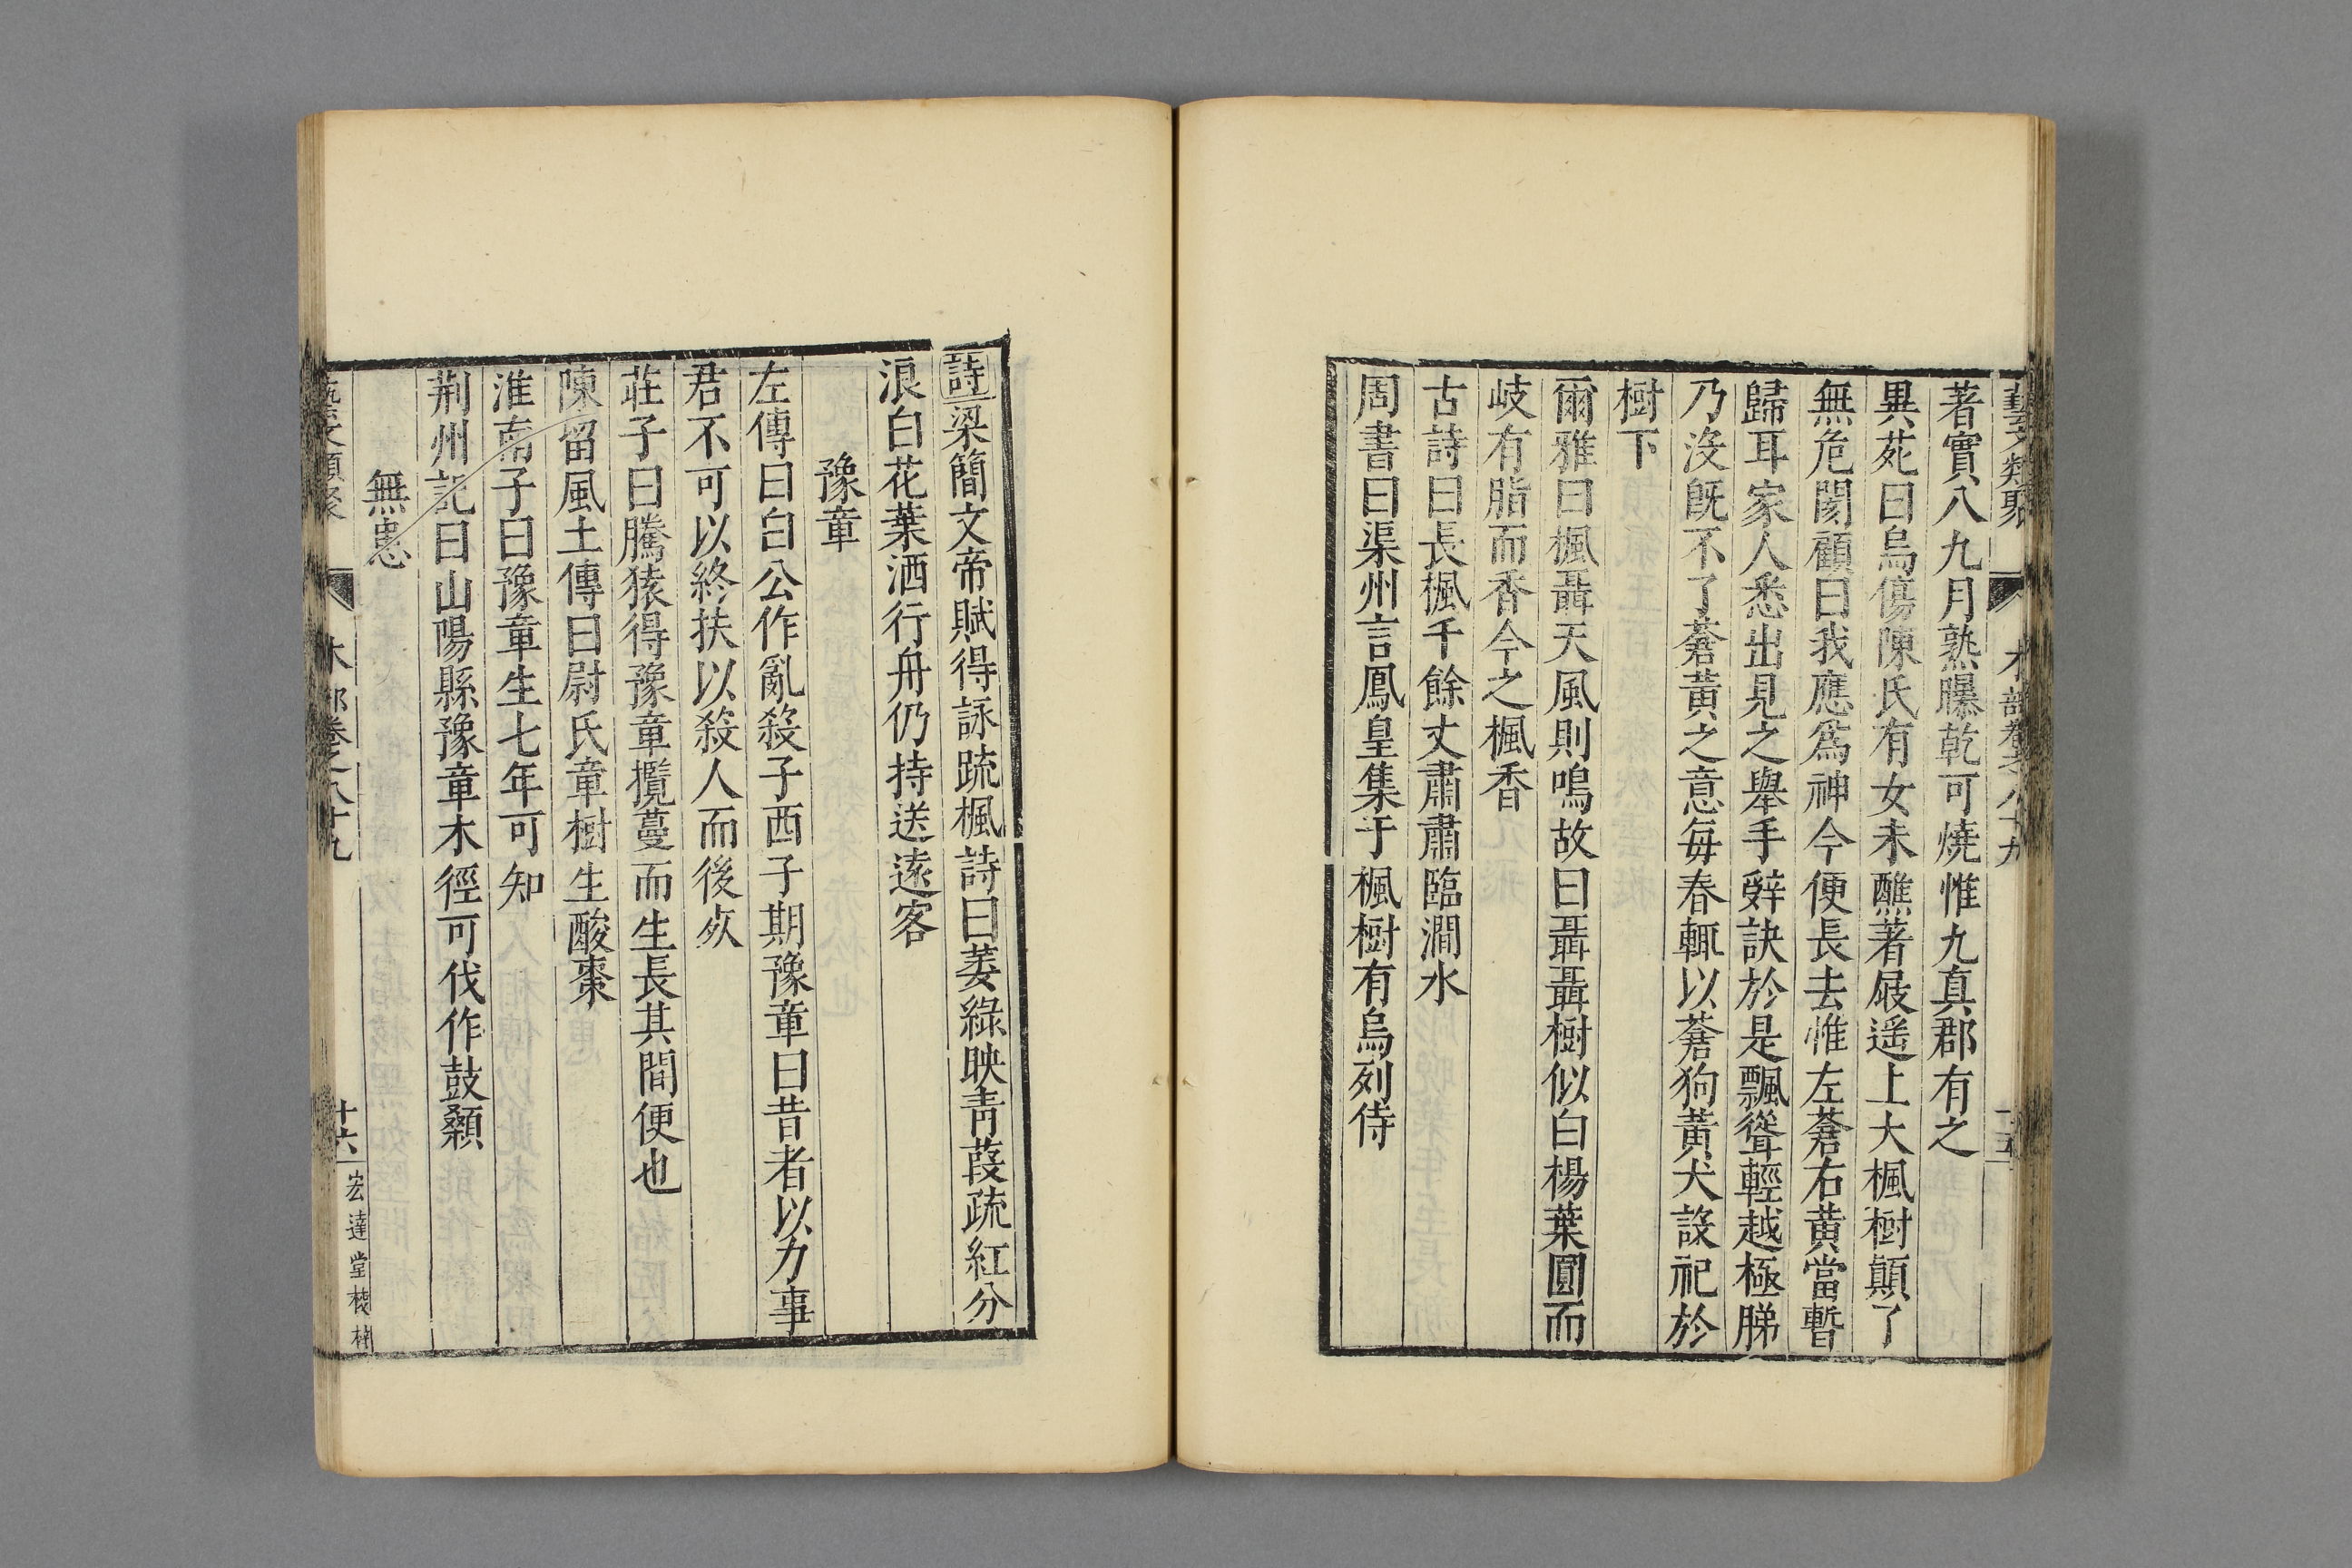 藝文類聚 木部卷之八十九 十五
著實八九月熟曝乾可燒惟九真郡有之
異苑曰烏傷陳氏有女未醮著屐遥上大楓樹顛了
無危閡顧曰我應爲神今便長去惟左蒼右黄當暫
歸耳家人悉出見之舉手辤訣於是飄聳輕越極睇
乃沒旣不了蒼黃之意每春輒以蒼狗黃犬設祀於
樹下
爾雅曰楓聶天風則鳴故曰聶聶樹似白楊葉圓而
岐有脂而香今之楓香
古詩曰長楓千餘丈肅肅臨澗水
周書曰渠州言鳳皇集于楓樹有烏列侍
詩梁簡文帝賦得詠疏楓詩曰萎綠映青葭疏紅分
浪白花葉洒行舟仍持送遠客
豫章
左傳曰白公作亂殺子西子期豫章曰昔者以力事
君不可以終扶以殺人而後死
莊子曰騰猿得豫章攬蔓而生長其間便也
陳留風土傳曰尉氏章樹生酸棗
淮南子曰豫章生七年可知
荆州記曰山陽縣豫章木徑可伐作鼓顙
無患
藝文類聚 木部卷之八十九 十六 宏達堂校梓